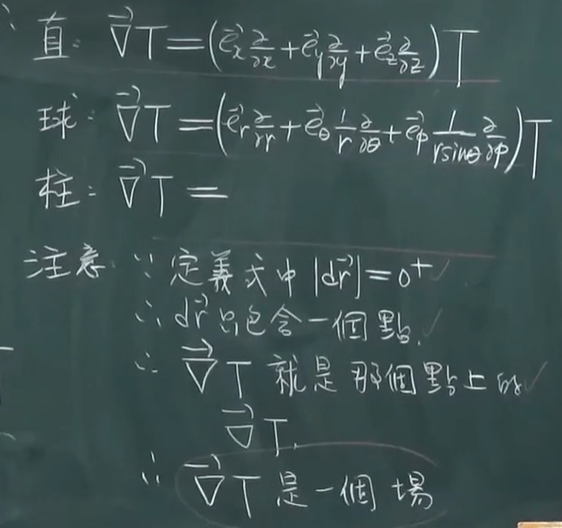 直: ∇⃗T=(e⃗x ∂/∂x+e⃗y ∂/∂y+e⃗z ∂/∂z)T
球: ∇⃗T=(e⃗r ∂/∂r+e⃗θ 1/r ∂/∂θ+e⃗φ 1/(r sinθ) ∂/∂φ)T
柱: ∇⃗T=
注意: ∵定義式中|dr⃗|=0⁺ ✓
∴dr⃗只包含一個點. ✓
∴∇⃗T就是那個點上的 ✓
∇⃗T.
∴∇⃗T是一個場